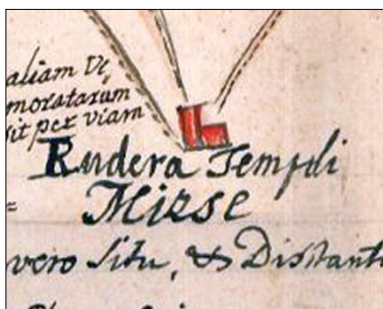 aliam Ve
moratarum
sit per viam
Rudera Templi
Mirse
=
vero Situ, & Distanti